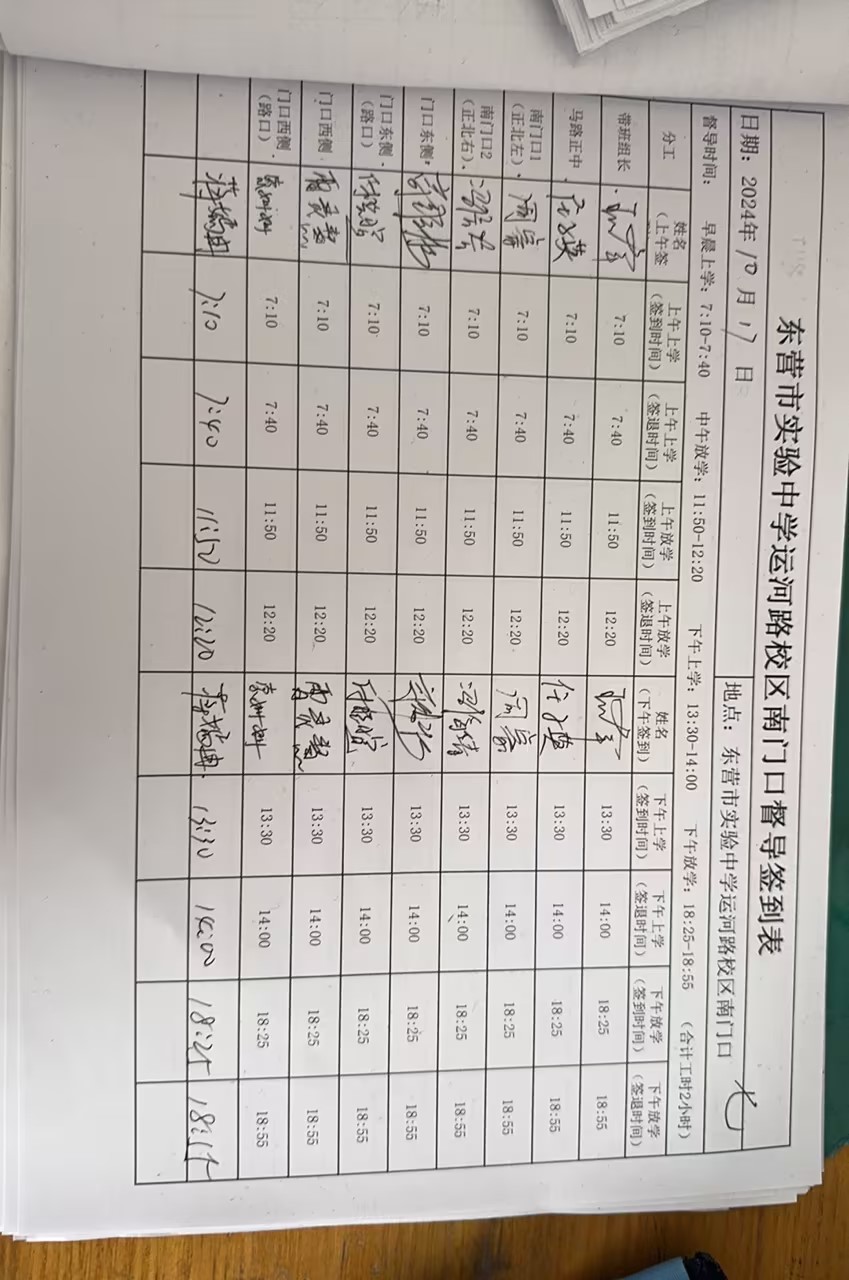 东营市实验中学运河路校区南门口督导签到表
日期：2024年10月17日 地点：东营市实验中学运河路校区南门口 七
督导时间： 早晨上学：7:10-7:40 中午放学：11:50-12:20 下午上学：13:30-14:00 下午放学：18:25-18:55 （合计工时2小时）
分工 姓名（上午签 上午上学（签到时间） 上午上学（签退时间） 上午放学（签到时间） 上午放学（签退时间） 姓名（下午签到） 下午上学（签到时间） 下午上学（签退时间） 下午放学（签到时间） 下午放学（签退时间）
带班组长 7:10 7:40 11:50 12:20 13:30 14:00 18:25 18:55
马路正中 7:10 7:40 11:50 12:20 13:30 14:00 18:25 18:55
南门口1（正北左） 7:10 7:40 11:50 12:20 13:30 14:00 18:25 18:55
南门口2（正北右） 7:10 7:40 11:50 12:20 13:30 14:00 18:25 18:55
门口东侧 7:10 7:40 11:50 12:20 13:30 14:00 18:25 18:55
门口东侧（路口） 7:10 7:40 11:50 12:20 13:30 14:00 18:25 18:55
门口西侧 7:10 7:40 11:50 12:20 13:30 14:00 18:25 18:55
门口西侧（路口） 7:10 7:40 11:50 12:20 13:30 14:00 18:25 18:55
7:10 7:40 11:50 12:20 13:30 14:00 18:25 18:55